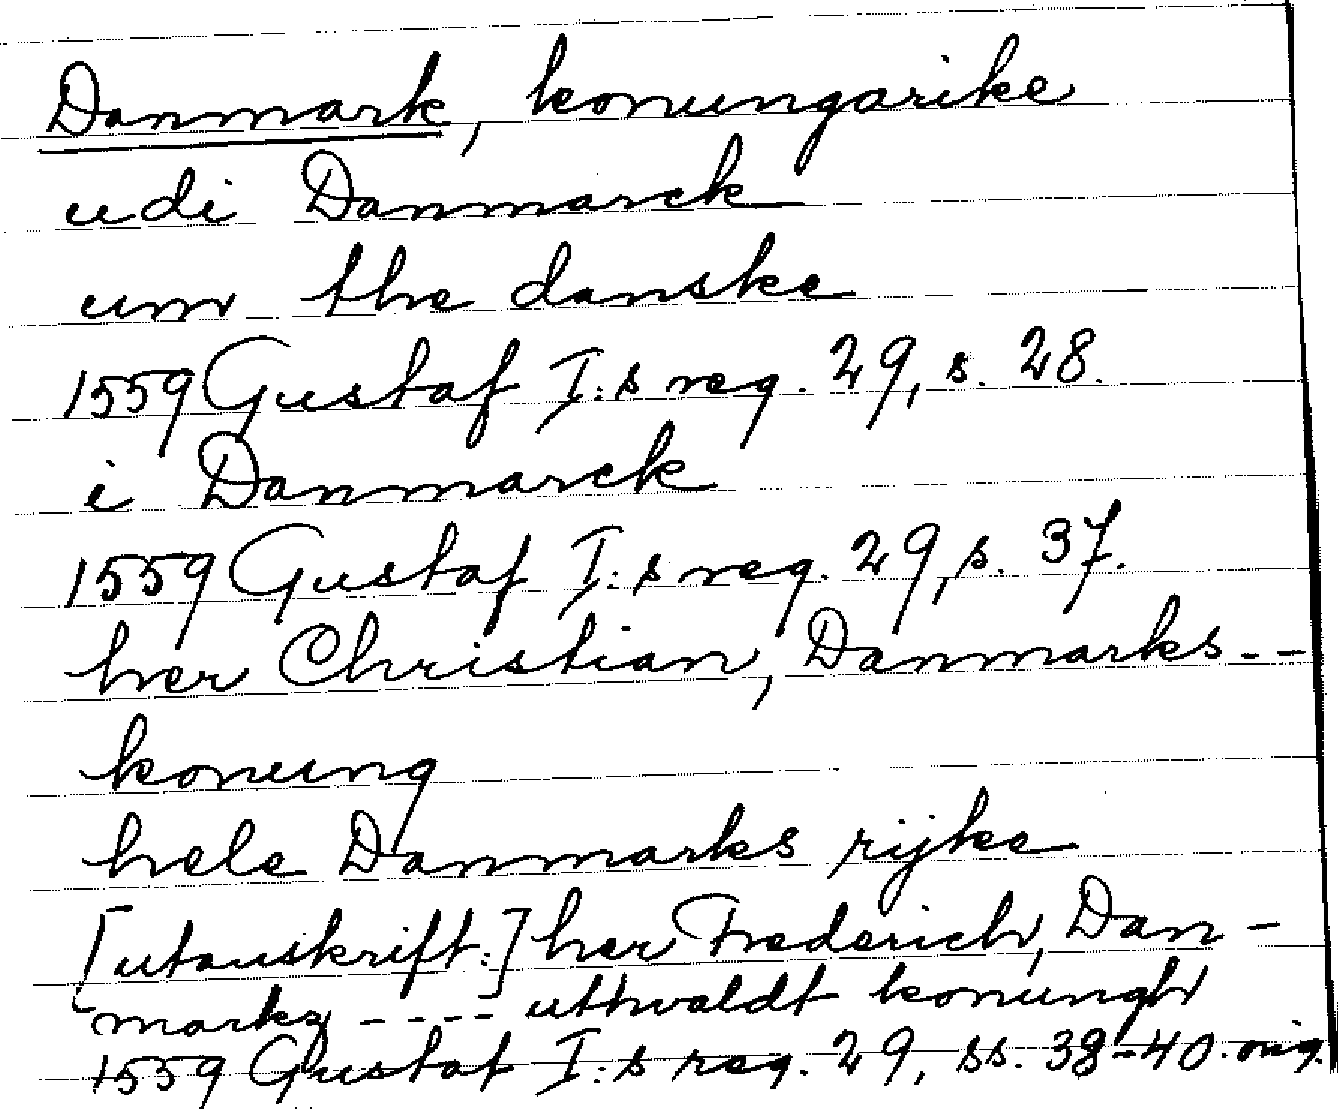 Danmark, konungarike
udi Danmarck
um the danske
1559 Gustaf I:s reg. 29, s. 28.
i Danmarck
1559 Gustaf I:s reg. 29, s. 37.
her Christian, Danmarks --
konung
hele Danmarks rijke
[utanskrift:] her Frederich, Dan-
markz ---- uthvaldt konungh
1559 Gustaf I:s reg. 29, ss. 38-40. orig.